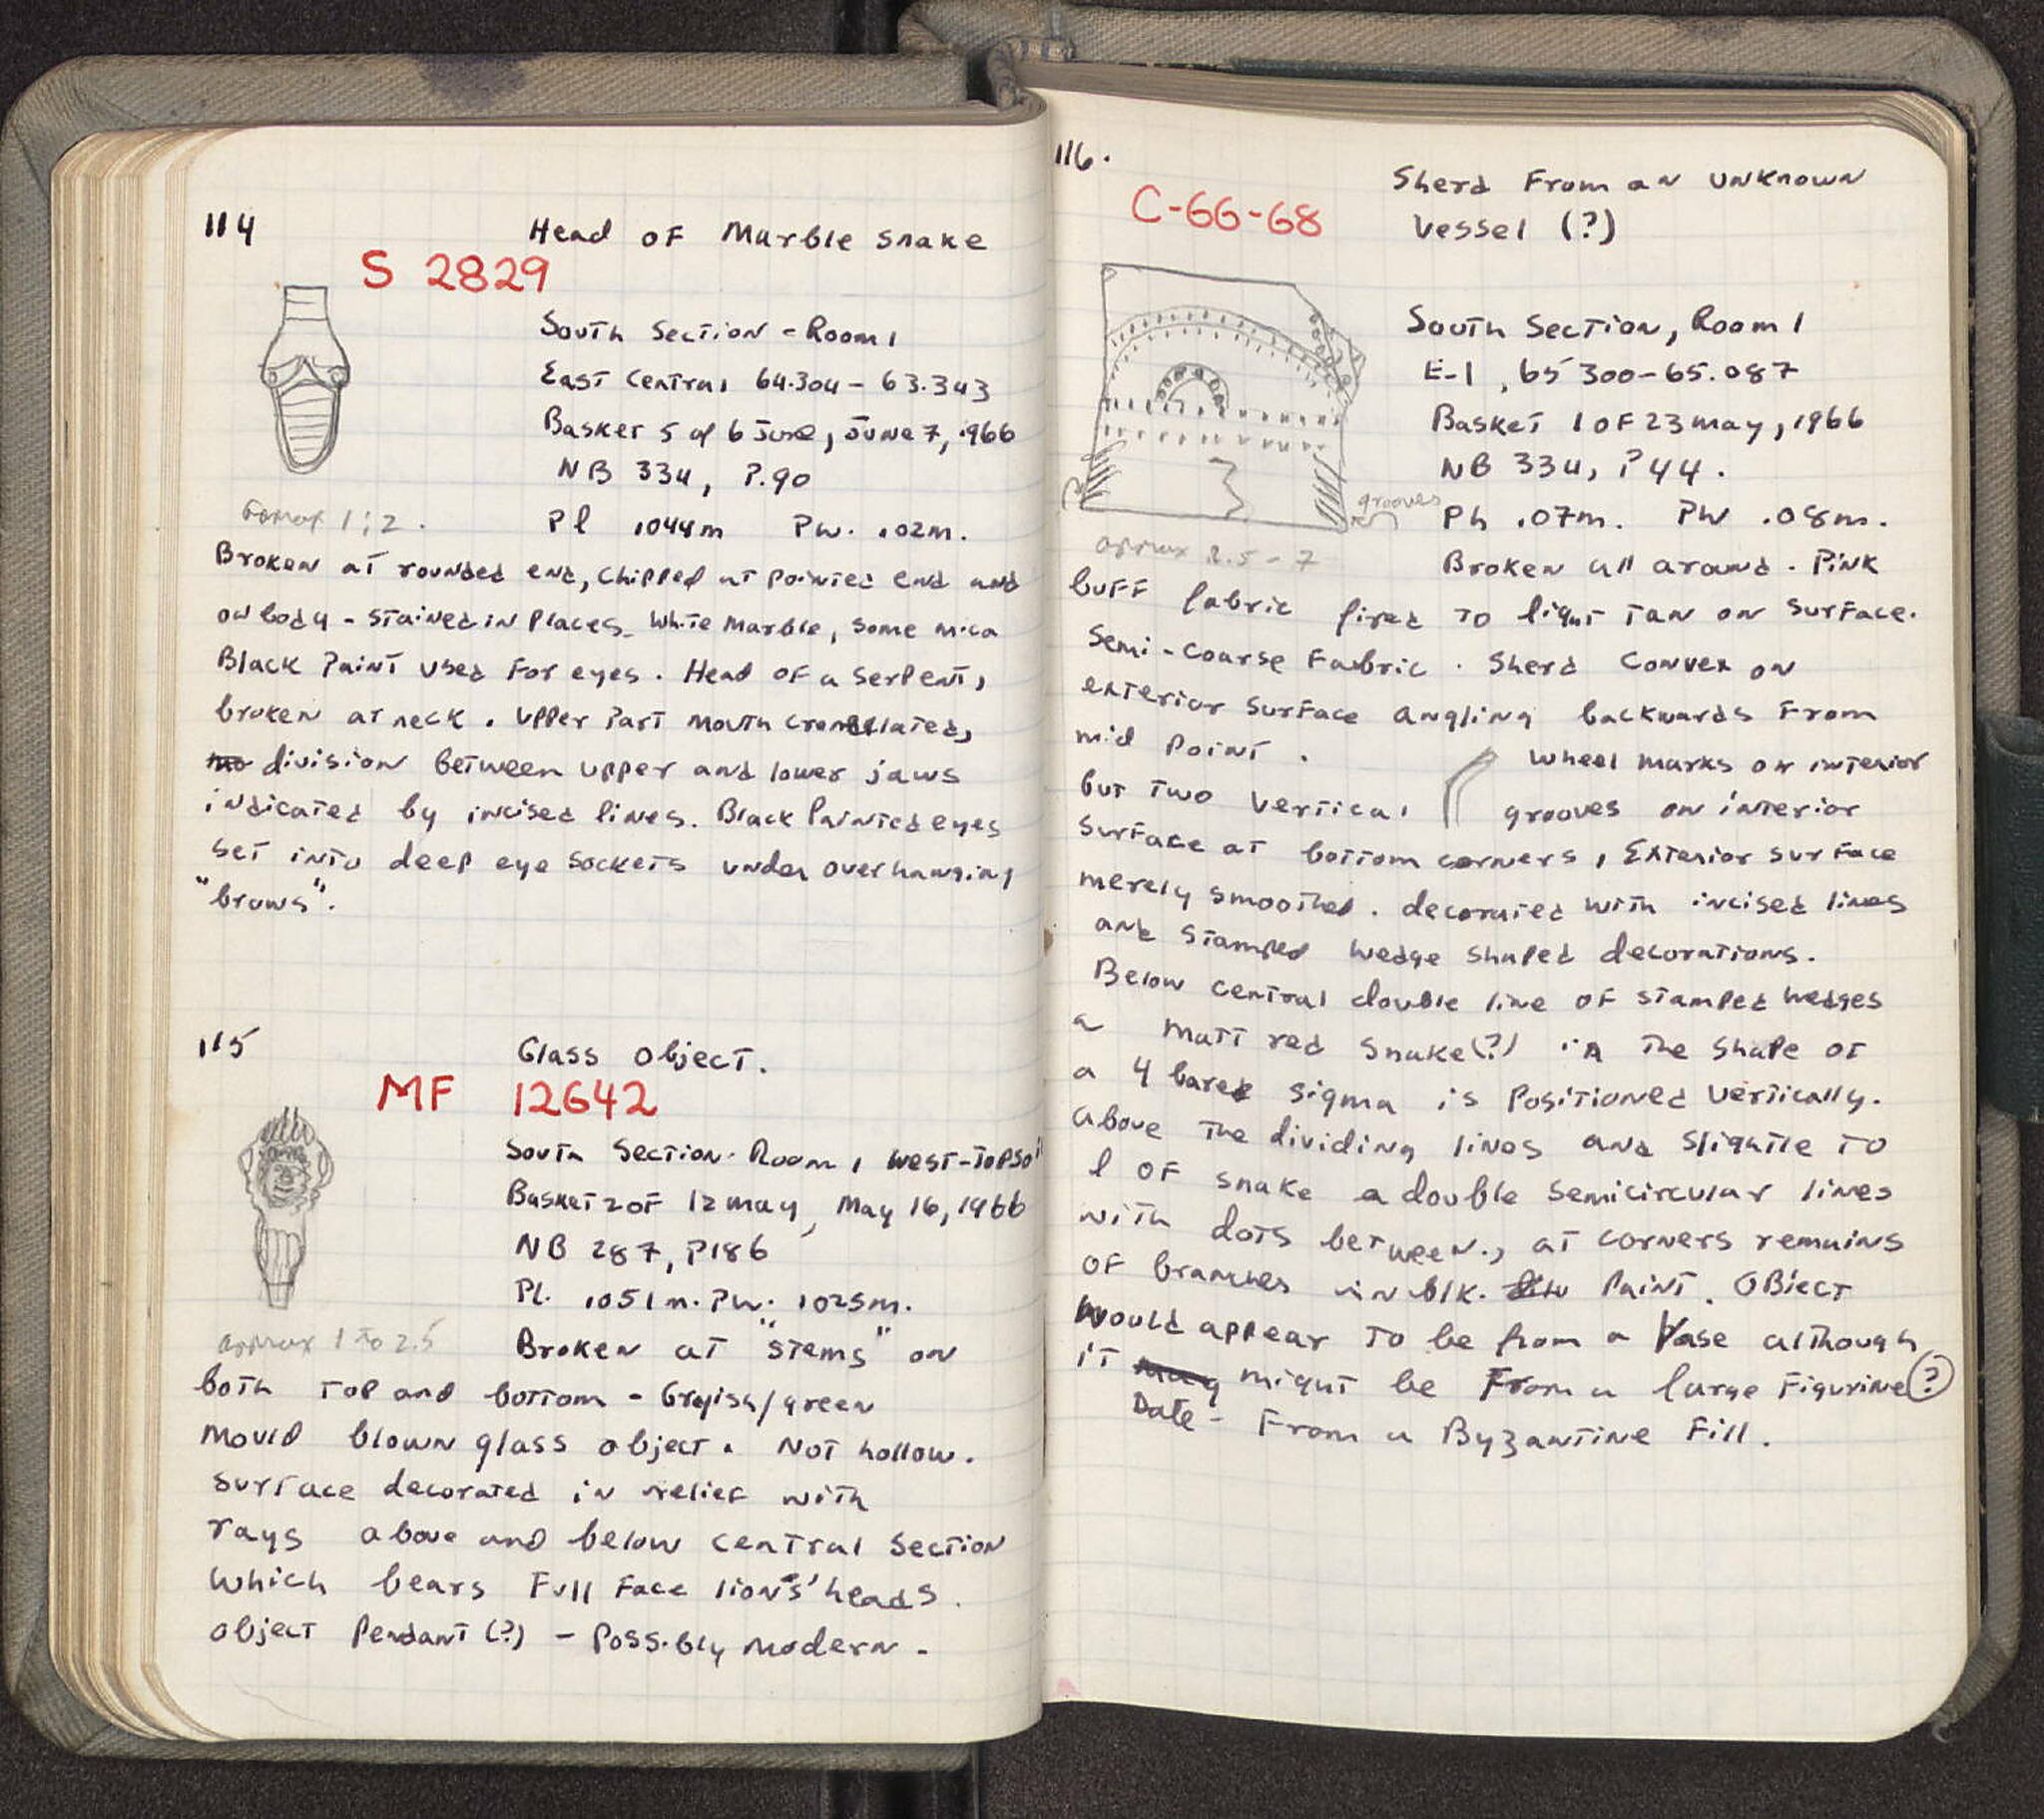 114
Head of Marble snake
S 2829
South Section - Room 1
East Central 64.304 - 63.343
Basket 5 of 6 June, June 7, 1966
NB 334, P.90
approx 1:2.
Pl .044m Pw. .02m.
Broken at rounded end, chipped at pointed end and
on body - stained in places. White Marble, some mica
Black Paint used for eyes. Head of a serpent,
broken at neck. Upper Part mouth crenellated,
division between upper and lower jaws
indicated by incised lines. Black Painted eyes
set into deep eye sockets under overhanging
"brows".
115
Glass object.
MF 12642
South Section. Room 1 West-Topsoil
Basket 2 of 12 may, May 16, 1966
NB 287, P186
Pl. .051m. Pw. .025m.
approx 1 to 2.5
Broken at "stems" on
both top and bottom - Grayish/green
Mould blown glass object. Not hollow.
Surface decorated in relief with
rays above and below central section
which bears Full Face lions' heads.
object Pendant (?) - Possibly modern -
116.
Sherd From an unknown
C-66-68
Vessel (?)
South Section, Room 1
E-1, 65 300-65.087
Basket 1 of 23 may, 1966
NB 334, P 44.
grooves
Ph .07m. Pw .08m.
approx 2.5 - 7
Broken all around. Pink
buff fabric fired to light tan on surface.
Semi-coarse Fabric. Sherd convex on
exterior surface angling backwards from
mid point. Wheel marks on interior
but two vertical grooves on interior
surface at bottom corners, Exterior surface
merely smoothed. decorated with incised lines
and stamped wedge shaped decorations.
Below central double line of stamped wedges
a matt red snake (?) in the shape of
a 4 bared sigma is Positioned vertically.
Above the dividing lines and slightle to
l of snake a double semicircular lines
with dots between., at corners remains
of branches in blk. Paint. Object
would appear to be from a Vase although
it might be From a large Figurine (?)
Date - From a Byzantine Fill.